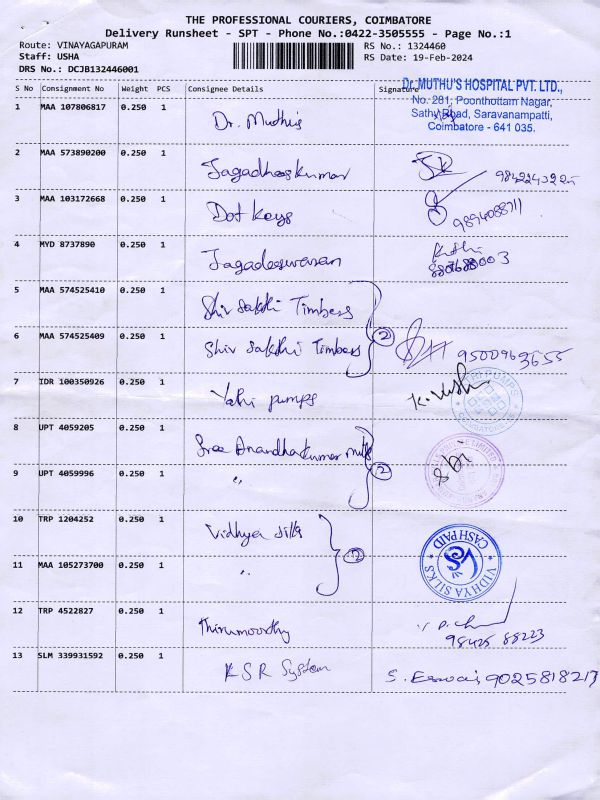 THE PROFESSIONAL COURIERS, COIMBATORE
Delivery Runsheet - SPT - Phone No.:0422-3505555 - Page No.:1
Route: VINAYAGAPURAM RS No.: 1324460
Staff: USHA RS Date: 19-Feb-2024
DRS No.: DCJB132446001
S No Consignment No Weight PCS Consignee Details Signature
Dr. MUTHU'S HOSPITAL PVT. LTD.,
No. 281, Poonthottam Nagar,
Sathy Road, Saravanampatti,
Coimbatore - 641 035.
1 MAA 107806817 0.250 1 Dr. Muthus
2 MAA 573890200 0.250 1 Jagadheeskumar
3 MAA 103172668 0.250 1 Dot Keys 9894088711
4 MYD 8737890 0.250 1 Jagadeeswaran
5 MAA 574525410 0.250 1 Shiv Sakthi Timbers
6 MAA 574525409 0.250 1 Shiv Sakthi Timbers 2 9500963655
7 IDR 100350926 0.250 1 Yahi pumps K. Usha
PUMPS
COIMBATORE
8 UPT 4059205 0.250 1 Sree Anandhakumar Mills
9 UPT 4059996 0.250 1 " 2
LIMITED
10 TRP 1204252 0.250 1 Vidhya Silks
11 MAA 105273700 0.250 1 " 2
VIDHYA SILKS
CASH PAID
12 TRP 4522827 0.250 1 Thirumoorthy
98425 88223
13 SLM 339931592 0.250 1 KSR System S. Eswari 9025818213